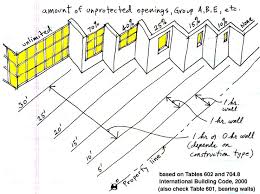 amount of unprotected openings, Group A,B,E, etc.
unlimited
70%
40%
25%
15%
10%
None
1 hr wall
1 hr. wall
1 hr or 0 hr wall
(depends on
construction type)
Property line
based on Tables 602 and 704.8
International Building Code, 2000
(also check Table 601, bearing walls)